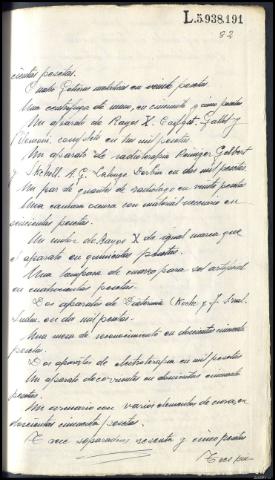 L.5.938.191
82
cientas pesetas.
Cuatro Gotieras metalicas en veinte pesetas
Una centrifuga de mano, en cincuenta y cinco pesetas
Un aparato de Rayos X.
completo en tres mil pesetas
Un aparato de radioterapia Reiniger, Gebbert
y Schall A.G. Berlin en dos mil pesetas.
Un par de guantes de radiologo en veinte pesetas
Una camara oscura con material necesario en
seiscientas pesetas.
Un motor de Rayos X de igual marca que
el aparato en quinientas pesetas.
Una lampara de cuarzo para sol artificial
en cuatrocientas pesetas.
Dos aparatos de Diatermia
en dos mil pesetas.
Una mesa de reconocimiento en doscientas cincuenta
pesetas.
Dos aparatos de electroterapia en mil pesetas
Un aparato de corrientes en doscientas cincuenta
pesetas.
Un armario con varios elementos de cura, en
doscientas cincuenta pesetas.
Trece separadores sesenta y cinco pesetas
Trece